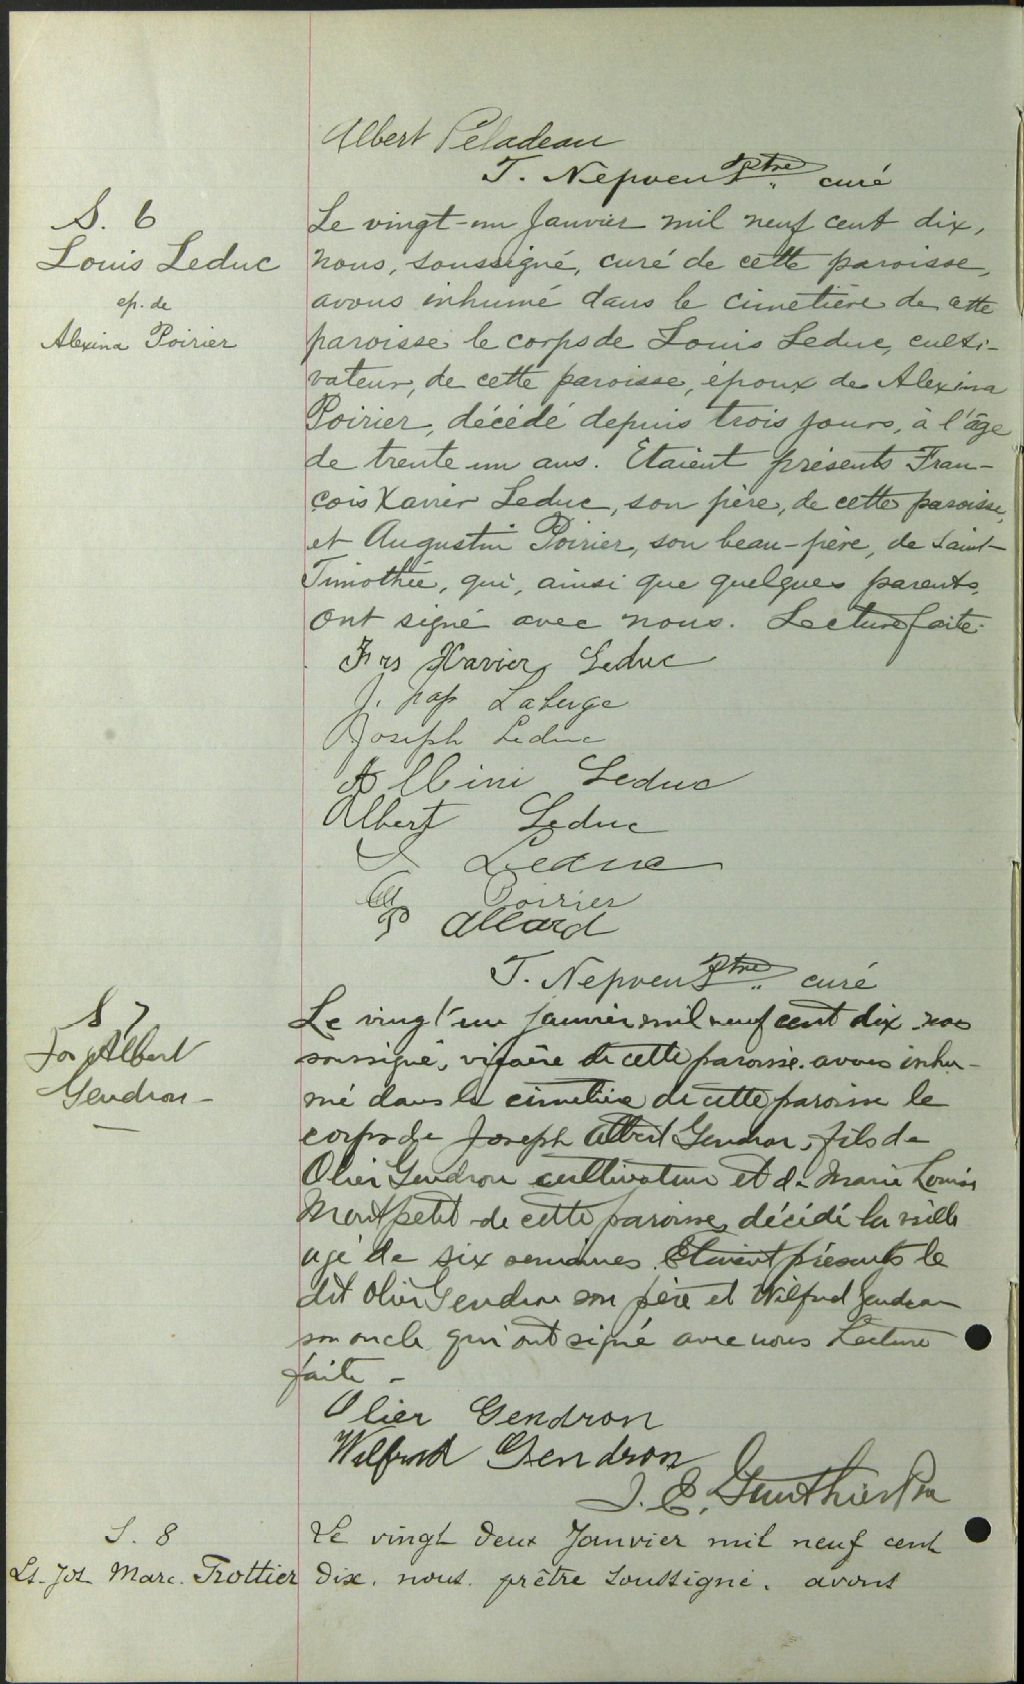 Albert Péladeau
T. Nepveu Ptre curé
S. 6
Louis Leduc
ep. de
Alexina Poirier
Le vingt-un Janvier mil neuf cent dix,
nous, soussigné, curé de cette paroisse,
avons inhumé dans le cimetière de cette
paroisse le corps de Louis Leduc, culti-
vateur, de cette paroisse, époux de Alexina
Poirier, décédé depuis trois jours, à l'âge
de trente un ans. Etaient présents Fran-
çois Xavier Leduc, son père, de cette paroisse,
et Augustin Poirier, son beau-père, de Saint-
Timothée, qui, ainsi que quelques parents,
ont signé avec nous. Lecture faite.
Frs Xavier Leduc
J. Laberge
Joseph Leduc
Albini Leduc
Albert Leduc
Leduc
Poirier
P Allard
T. Nepveu Ptre curé
S 7
Jos Albert
Gendron -
Le vingt'un janvier mil neuf cent dix nous
soussigné, vicaire de cette paroisse. avons inhu-
mé dans le cimetière de cette paroisse le
corps de Joseph Albert Gendron, fils de
Olier Gendron cultivateur et de Marie Louise
Montpetit de cette paroisse, décédé la veille
agé de six semaines. Etaient présents le
dit Olier Gendron son père et Wilfrid Gendron
son oncle qui ont signé avec nous Lecture
faite -
Olier Gendron
Wilfrid Gendron
J. E. Gauthier Ptre
S. 8
Ls. Jos Marc. Trottier
Le vingt deux Janvier mil neuf cent
dix. nous. prêtre soussigné. avons